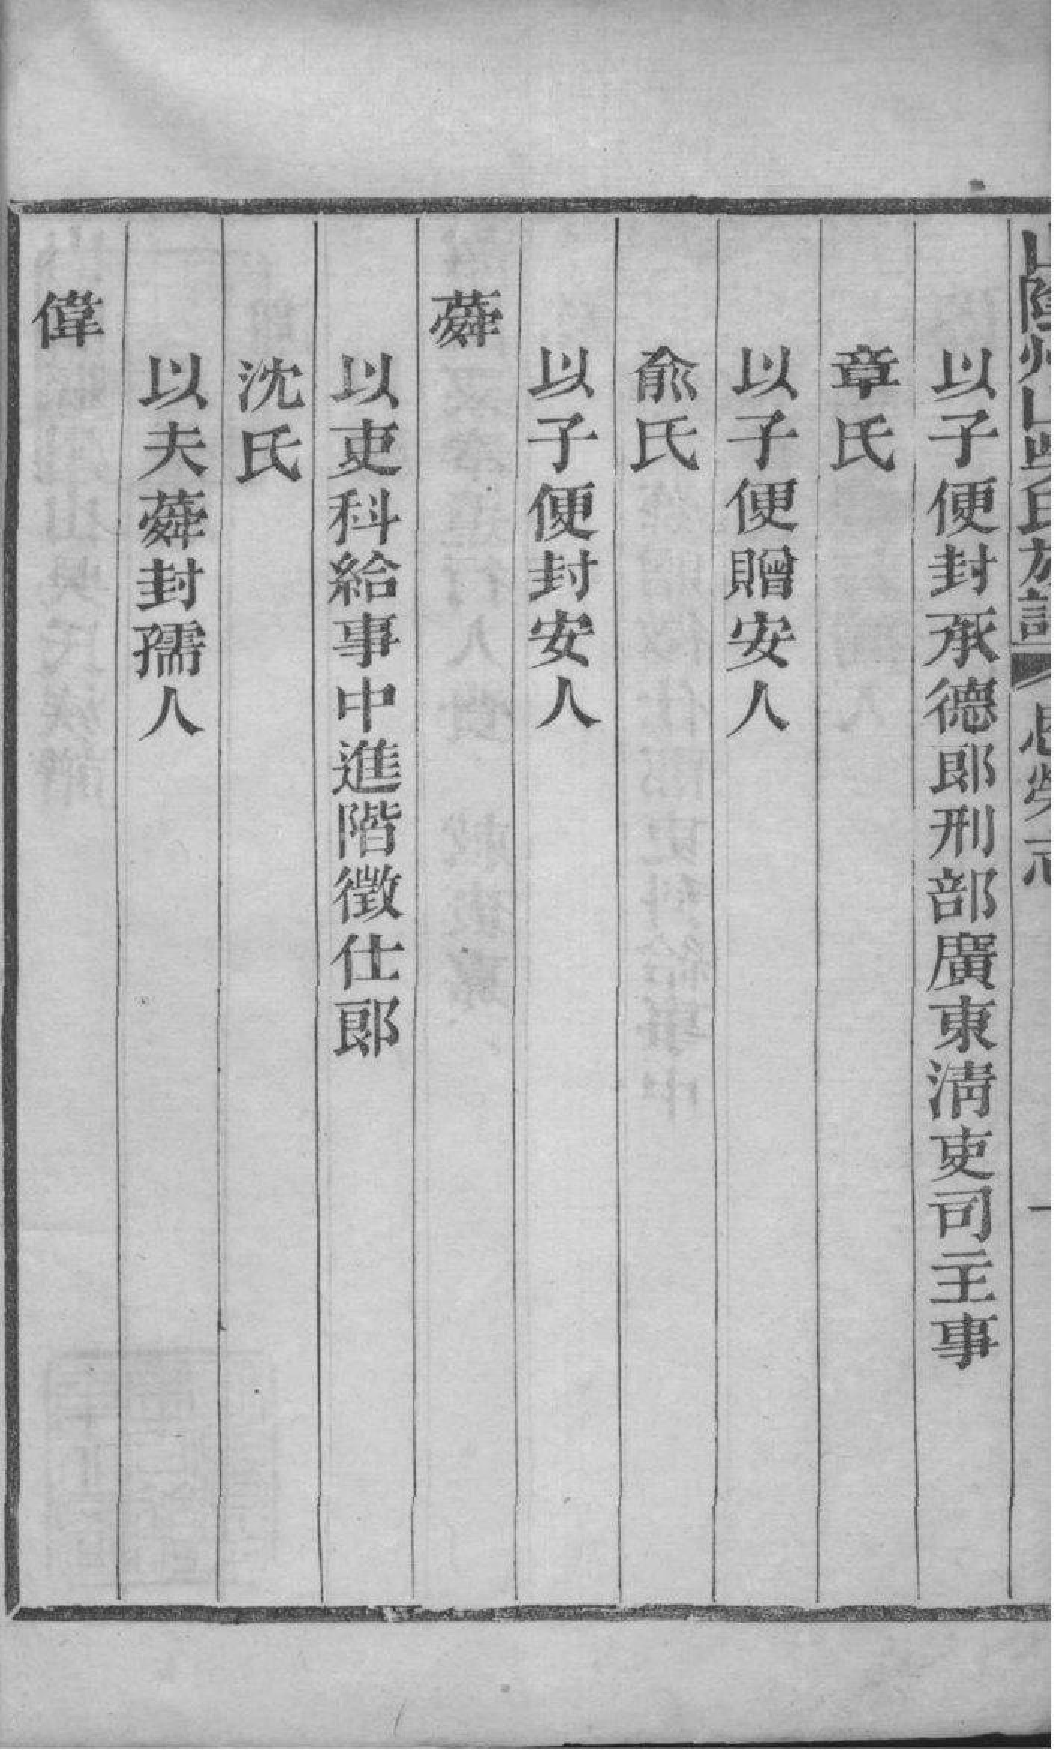 山陰州山吳氏族譜 恩榮志 一
以子便封承德郎刑部廣東淸吏司主事
章氏
以子便贈安人
兪氏
以子便封安人
蕣
以吏科給事中進階徵仕郎
沈氏
以夫蕣封孺人
偉